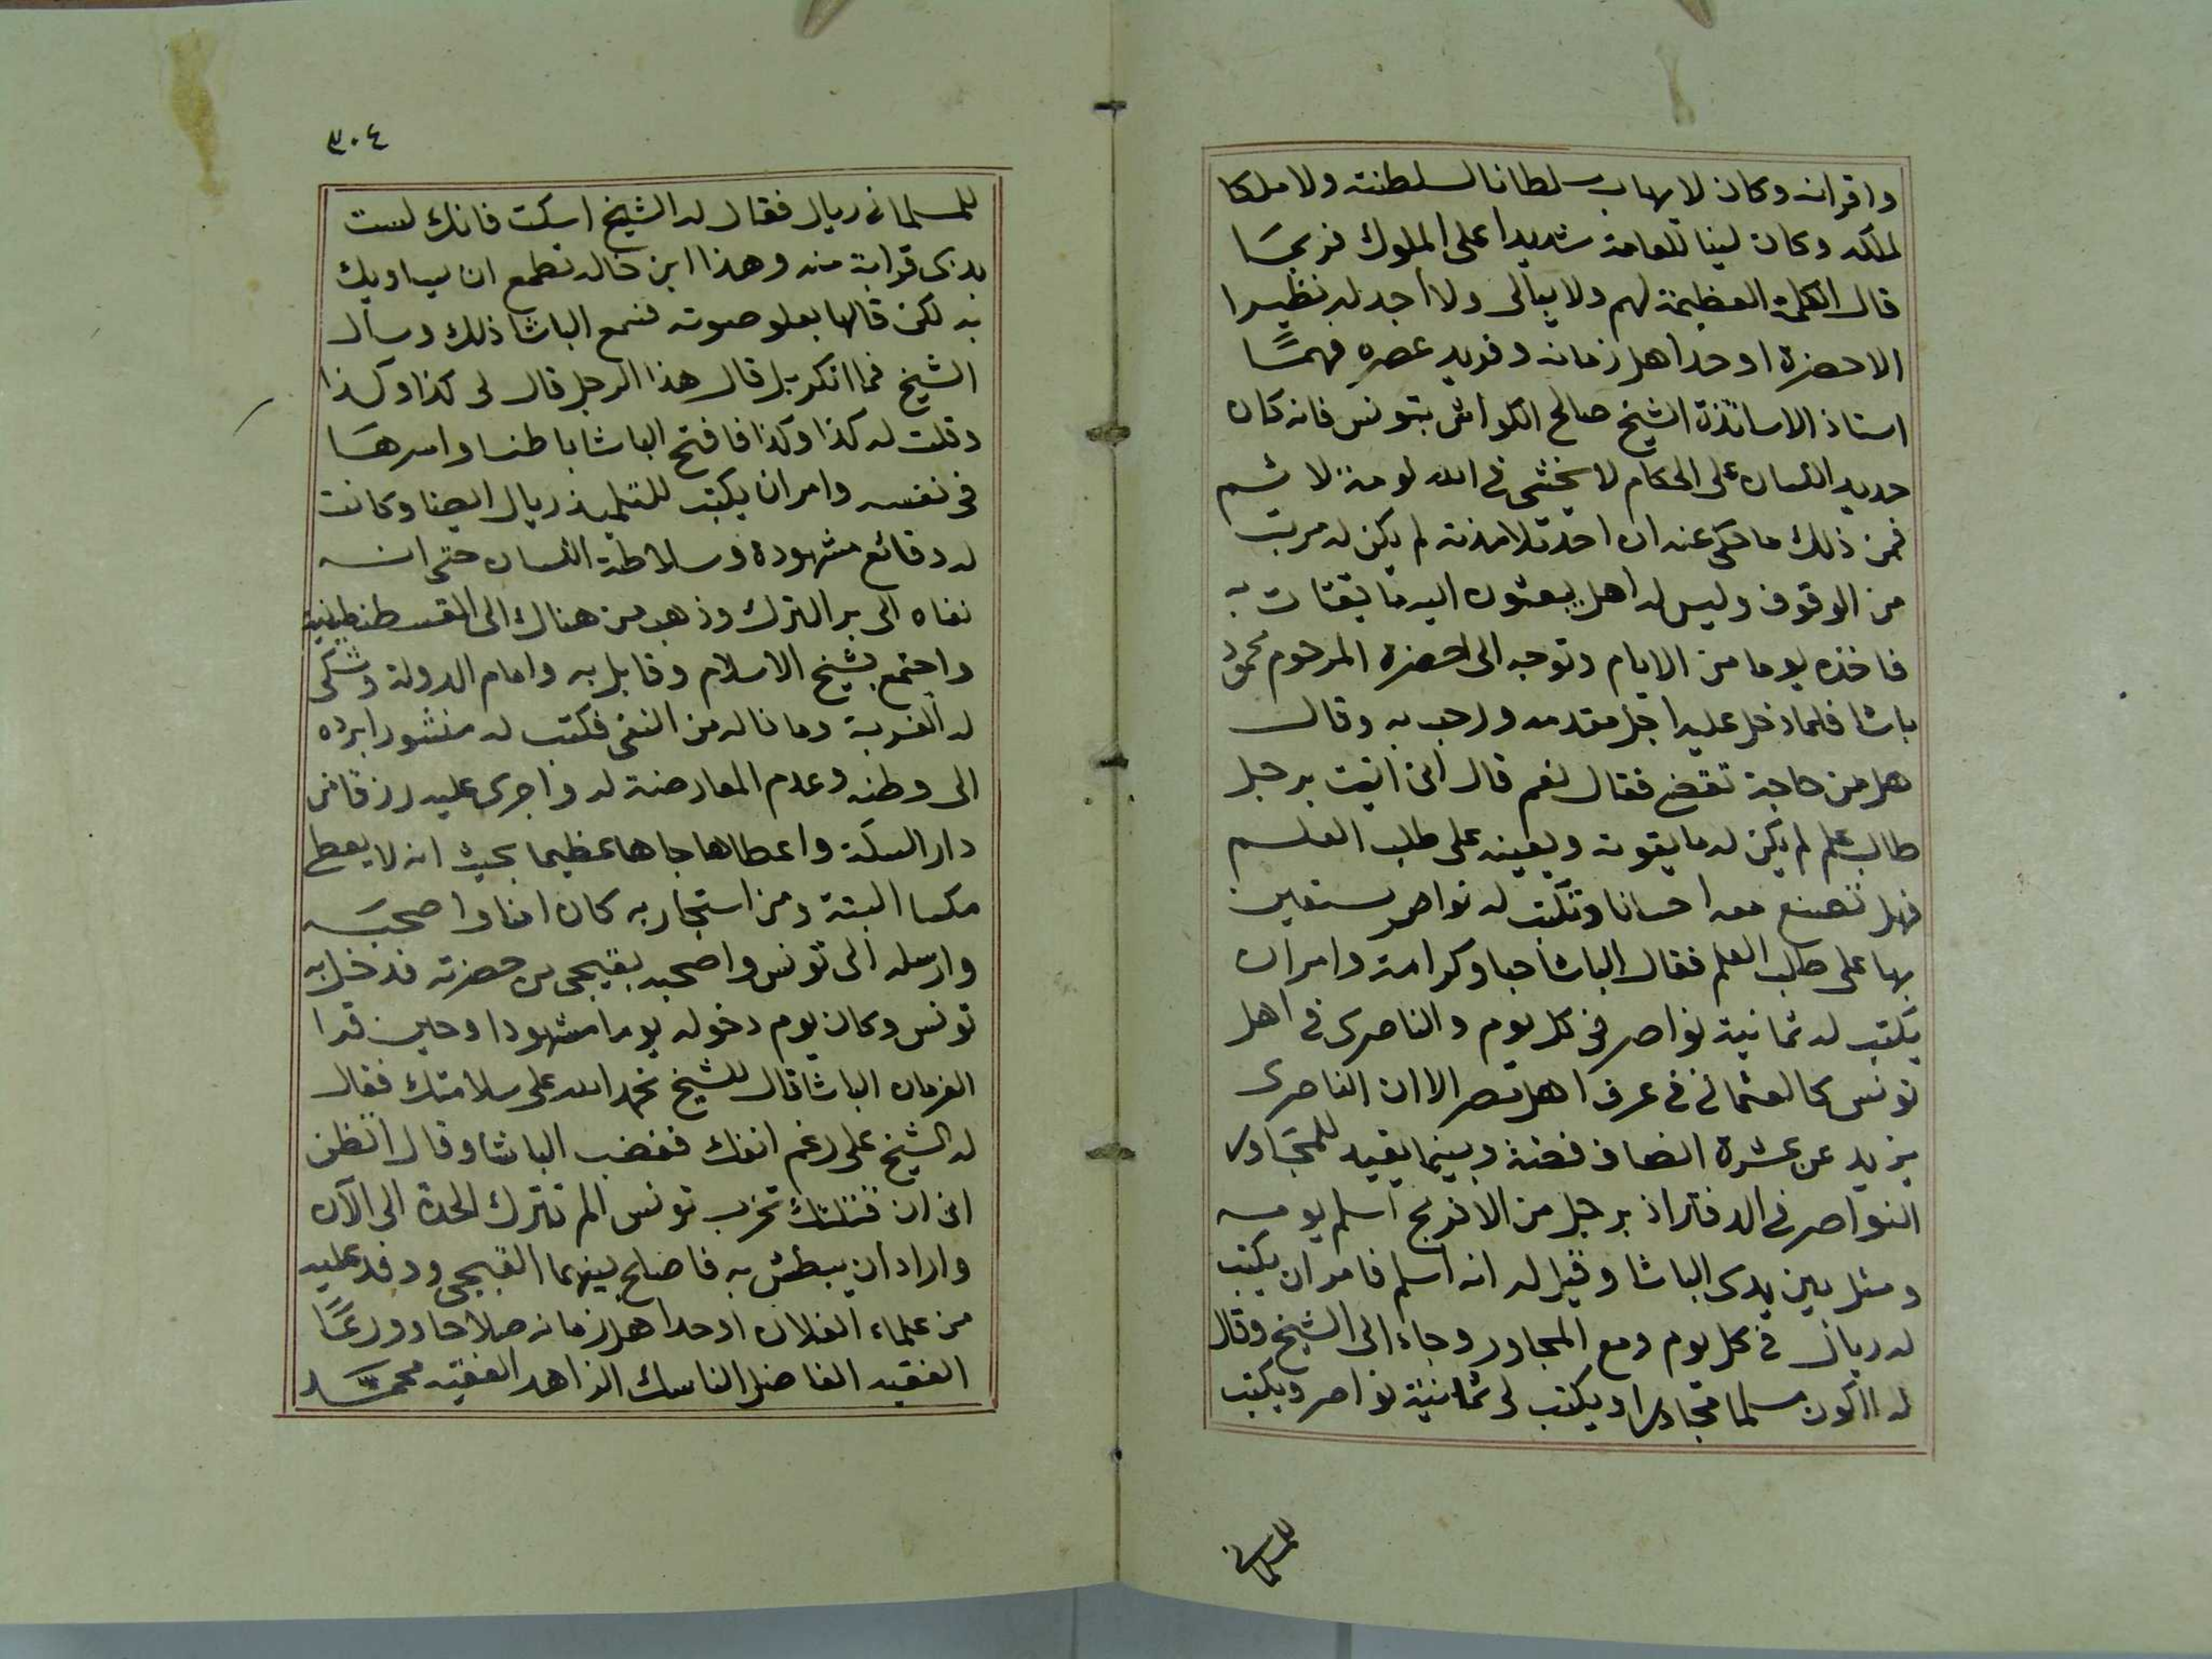 واقرانه وكان لا يهاب سلطانا لسلطنته ولا ملكا
لملكه وكان لينا للعامة شديدا على الملوك فربما
قال الكلمة العظيمة لهم ولا يبالى ولا اجد له نظيرا
الا حضرة اوحد اهل زمانه وفريد عصره فهما
استاذ الاساتذة الشيخ صالح الكواش بتونس فانه كان
حديد اللسان على الحكام لا يخشى فى الله لومة لائم
فمن ذلك ما حكى عنه ان احد تلامذته لم يكن له مرتب
من الوقوف وليس له اهل يبعثون اليه ما يقتات به
فاخذه يوما من الايام وتوجه الى حضرة المرحوم محمود
باشا فلما دخل عليه اجل مقدمه ورحب به وقال
هل من حاجة تقضى فقال نعم قال انى اتيت برجل
طالب علم لم يكن له ما يقوته ويعينه على طلب العلم
فهل تصنع معه احسانا وتكتب له نواصر يستعين
بها على طلب العلم فقال الباشا حبا وكرامة وامر ان
يكتب له ثمانية نواصر فى كل يوم والناصرى فى اهل
تونس كالعثمانى فى عرف اهل مصر الا ان الناصرى
يزيد عن عشرة انصاف فضة وبينما يقيد للمجاور
النواصر فى الدفتر اذ برجل من الافرنج اسلم يومه
ومثل بين يدى الباشا وقيل له انه اسلم فامر ان يكتب
له ريال فى كل يوم وسمع المجاور وجاء الى الشيخ وقال
له ااكون مسلما مجاورا ويكتب لى ثمانية نواصر ويكتب
للمسلمانى
٣٠٤
للمسلمانى ريال فقال له الشيخ اسكت فانك لست
بذى قرابة منه وهذا ابن خاله تطمع ان يساويك
به لكن قالها بعلو صوته فسمع الباشا ذلك وسأل
الشيخ فما انكر بل قال هذا الرجل قال لى كذا وكذا
وقلت له كذا وكذا فافتح الباشا باطنا واسرها
فى نفسه وامر ان يكتب للتلميذ ريال ايضا وكانت
له وقائع مشهودة وسلاطة اللسان حتى انه
نفاه الى بر الترك وذهب من هناك الى القسطنطينية
واجتمع بشيخ الاسلام وقابل به وامام الدولة وشكى
له الغربة وما ناله من النفى فكتب له منشورا برده
الى وطنه وعدم المعارضة له واجرى عليه رزقا من
دار السكة واعطاها جاها عظيما بحيث انه لا يعطى
مكسا البتة ومن استجار به كان امنا واصحبه
وارسله الى تونس واصحبه بقبجى من حضرته فدخل به
تونس وكان يوم دخوله يوما مشهودا وحين قرا
الفرمان الباشا قال للشيخ نحمد الله على سلامتك فقال
له الشيخ على رغم انفك فغضب الباشا وقال اتظن
انى ان قتلتك تخرب تونس الم تترك الحدة الى الآن
واراد ان يبطش به فاصلح بينهما القبجى ووفد عليه
من علماء الفلان اوحد اهل زمانه صلاحا وورعا
الفقيه الفاضل الناسك الزاهد الفقيه محمد